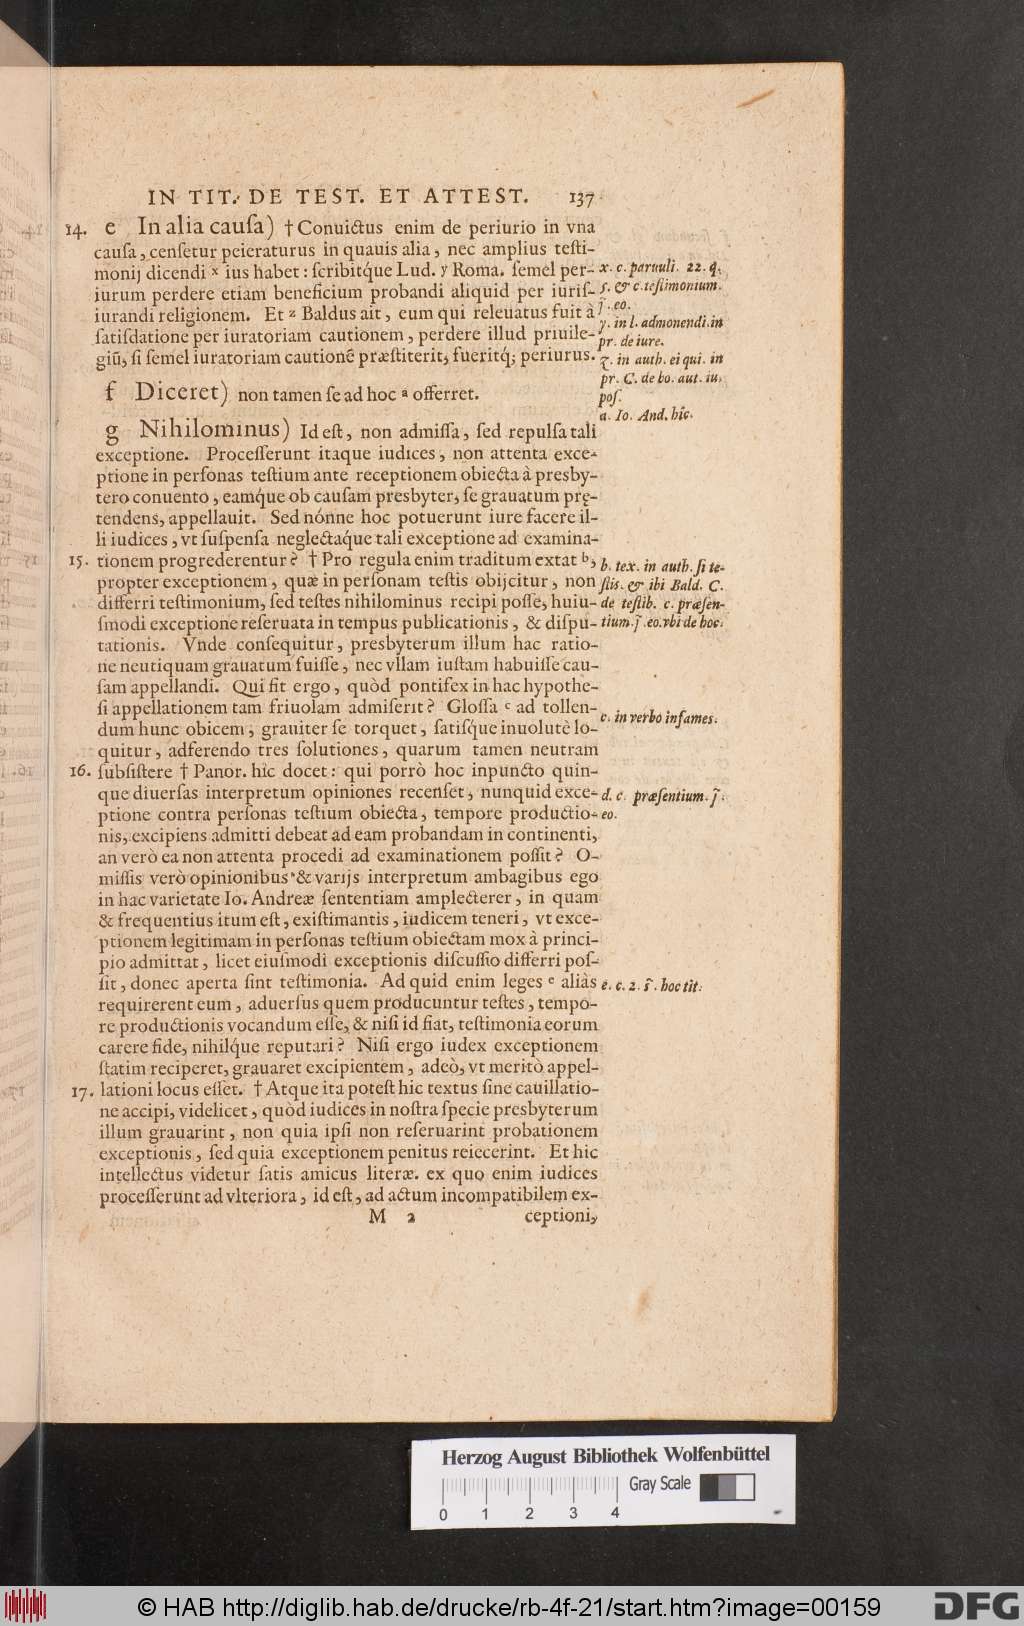 IN TIT. DE TEST. ET ATTEST. 137
14. e In alia cauſa) † Conuictus enim de periurio in vna
cauſa, cenſetur peieraturus in quauis alia, nec amplius teſti-
monij dicendi x ius habet: ſcribitq́ue Lud. y Roma. ſemel per-
iurum perdere etiam beneficium probandi aliquid per iuriſ-
iurandi religionem. Et z Baldus ait, eum qui releuatus fuit à
ſatiſdatione per iuratoriam cautionem, perdere illud priuile-
giũ, ſi ſemel iuratoriam cautionẽ præſtiterit, fueritq́; periurus.
x. c. paruuli. 22. q.
5. & c. teſtimonium.
j̃. eo.
y. in l. admonendi. in
pr. de iure.
z. in auth. ei qui. in
pr. C. de bo. aut. iu.
poſ.
f Diceret) non tamen ſe ad hoc a offerret.
a. Io. And. hîc.
g Nihilominus) Id eſt, non admiſſa, ſed repulſa tali
exceptione. Proceſſerunt itaque iudices, non attenta exce-
ptione in perſonas teſtium ante receptionem obiecta à presby-
tero conuento, eamq́ue ob cauſam presbyter, ſe grauatum prę-
tendens, appellauit. Sed nónne hoc potuerunt iure facere il-
li iudices, vt ſuſpenſa neglectaque tali exceptione ad examina-
15. tionem progrederentur? † Pro regula enim traditum extat b,
propter exceptionem, quæ in perſonam teſtis obijcitur, non
differri teſtimonium, ſed teſtes nihilominus recipi poſſe, huiu-
ſmodi exceptione reſeruata in tempus publicationis, & diſpu-
tationis. Vnde conſequitur, presbyterum illum hac ratio-
ne neutiquam grauatum fuiſſe, nec vllam iuſtam habuiſſe cau-
ſam appellandi. Qui fit ergo, quòd pontifex in hac hypothe-
ſi appellationem tam friuolam admiſerit? Gloſſa c ad tollen-
dum hunc obicem, grauiter ſe torquet, ſatiſque inuolutè lo-
quitur, adferendo tres ſolutiones, quarum tamen neutram
b. tex. in auth. ſi te-
ſtis. & ibi Bald. C.
de teſtib. c. præſen-
tium. j̃. eo. vbi de hoc.
c. in verbo infames.
16. ſubſiſtere † Panor. hîc docet: qui porrò hoc in puncto quin-
que diuerſas interpretum opiniones recenſet, nunquid exce-
ptione contra perſonas teſtium obiecta, tempore productio-
nis, excipiens admitti debeat ad eam probandam in continenti,
an verò ea non attenta procedi ad examinationem poſſit? O-
miſſis verò opinionibus & varijs interpretum ambagibus ego
in hac varietate Io. Andreæ ſententiam amplecterer, in quam
& frequentius itum eſt, exiſtimantis, iudicem teneri, vt exce-
ptionem legitimam in perſonas teſtium obiectam mox à princi-
pio admittat, licet eiuſmodi exceptionis diſcuſſio differri poſ-
ſit, donec aperta ſint teſtimonia. Ad quid enim leges e aliàs
requirerent eum, aduerſus quem producuntur teſtes, tempo-
re productionis vocandum eſſe, & niſi id fiat, teſtimonia eorum
carere fide, nihilq́ue reputari? Niſi ergo iudex exceptionem
ſtatim reciperet, grauaret excipientem, adeò, vt meritò appel-
d. c. præſentium. j̃.
eo.
e. c. 2. ſ̃. hoc tit.
17. lationi locus eſſet. † Atque ita poteſt hic textus ſine cauillatio-
ne accipi, videlicet, quòd iudices in noſtra ſpecie presbyterum
illum grauarint, non quia ipſi non reſeruarint probationem
exceptionis, ſed quia exceptionem penitus reiecerint. Et hic
intellectus videtur ſatis amicus literæ. ex quo enim iudices
proceſſerunt ad vlteriora, id eſt, ad actum incompatibilem ex-
M 2 ceptioni,
Herzog August Bibliothek Wolfenbüttel
Gray Scale
0 1 2 3 4
© HAB http://diglib.hab.de/drucke/rb-4f-21/start.htm?image=00159
DFG